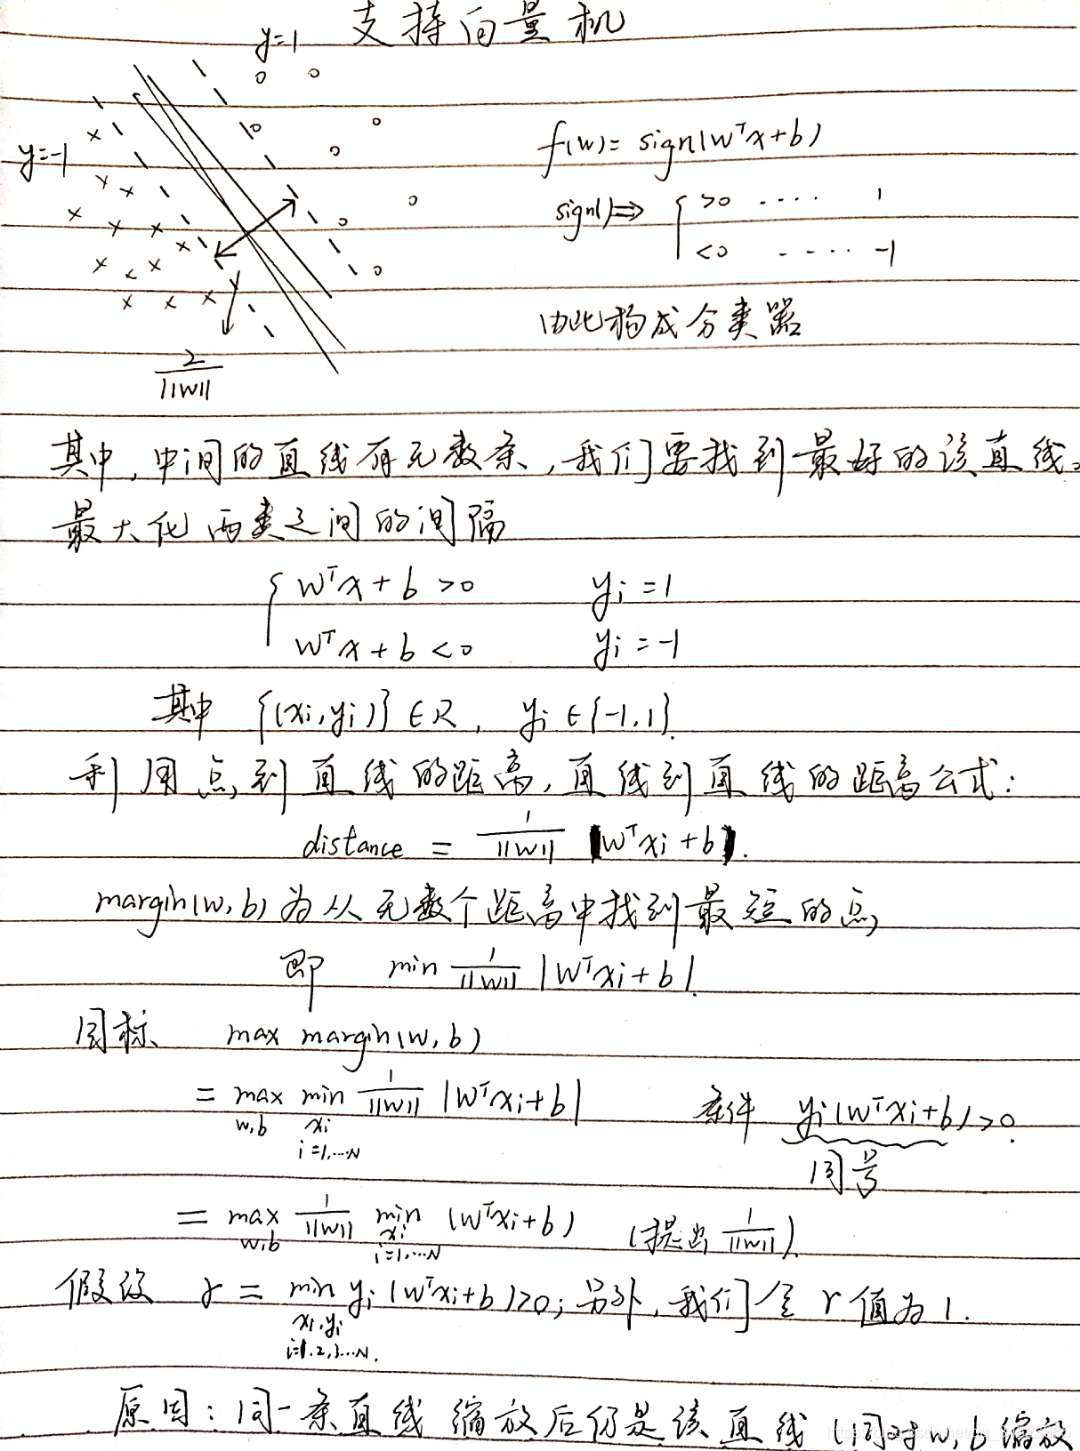 支持向量机
y=1
y=-1
f(w)= sign(wᵀx+b)
sign()⇒ { >0 ···· 1
<0 ····· -1
由此构成分类器
2/||w||
其中，中间的直线有无数条，我们要找到最好的该直线。
最大化两类之间的间隔
{ wᵀx+b>0 yi=1
wᵀx+b<0 yi=-1
其中 {(xi,yi)}∈R, yi∈{-1,1}.
利用点到直线的距离，直线到直线的距离公式：
distance = 1/||w|| |wᵀxi+b|.
margin(w,b)为从无数个距离中找到最短的点
即 min 1/||w|| |wᵀxi+b|.
目标 max margin(w,b)
= max min 1/||w|| |wᵀxi+b| 条件 yi(wᵀxi+b)>0.
w,b xi
i=1,···N
同号
= max 1/||w|| min (wᵀxi+b) (提出 1/||w||).
w,b xi
i=1,···N
假设 r = min yi(wᵀxi+b)>0; 另外，我们令r值为1.
xi,yi
i=1,2,3···N.
原因：同一条直线缩放后仍是该直线(同对w,b缩放